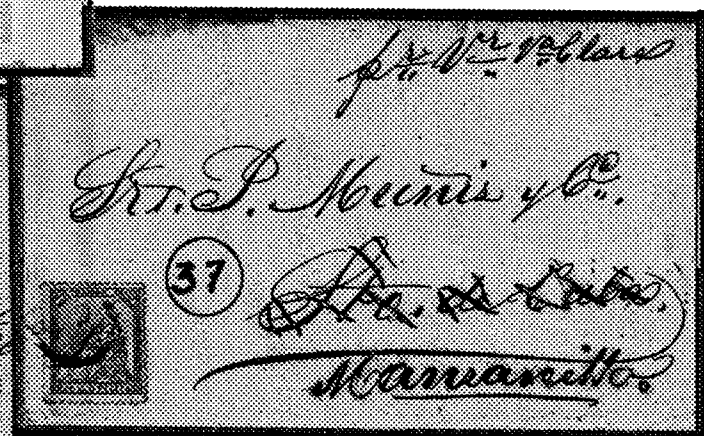 pr. Vr. Va. Clara
Srs. P. Muñis y Ca.
37
Sto. de Cuba,
Manzanillo.